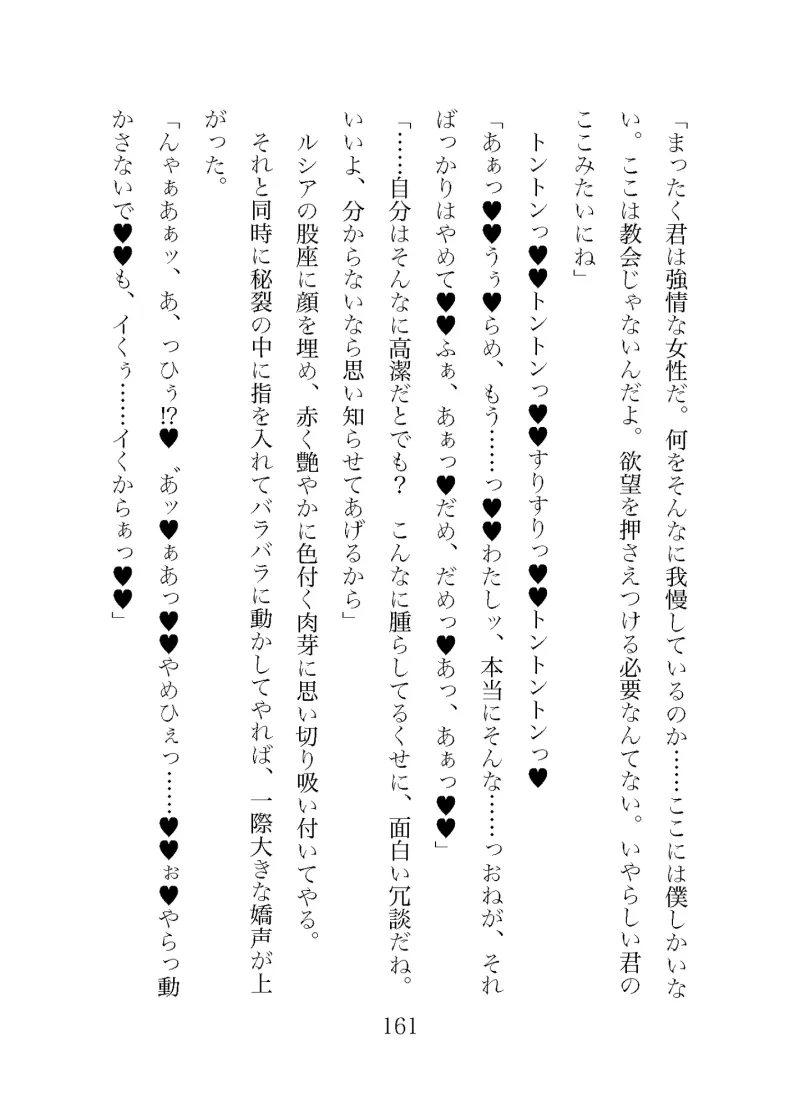 「まったく君は強情な女性だ。何をそんなに我慢しているのか……ここには僕しかいな
い。ここは教会じゃないんだよ。欲望を押さえつける必要なんてない。いやらしい君の
ここみたいにね」
トントンっ♥♥トントンっ♥♥すりすりっ♥♥トントントンっ♥
「あぁっ♥♥うぅ♥らめ、もう……っ♥♥わたしッ、本当にそんな……っおねが、それ
ばっかりはやめて♥♥ふぁ、あぁっ♥だめ、だめっ♥あっ、あぁっ♥♥」
「……自分はそんなに高潔だとでも？　こんなに腫らしてるくせに、面白い冗談だね。
いいよ、分からないなら思い知らせてあげるから」
ルシアの股座に顔を埋め、赤く艶やかに色付く肉芽に思い切り吸い付いてやる。
それと同時に秘裂の中に指を入れてバラバラに動かしてやれば、一際大きな嬌声が上
がった。
「んゃぁあぁッ、あ、っひぅ⁉♥　あ゛ッ♥ぁあっ♥♥やめひぇっ……♥♥ぉ♥やらっ動
かさないで♥♥も、イくぅ……イくからぁっ♥♥」
161